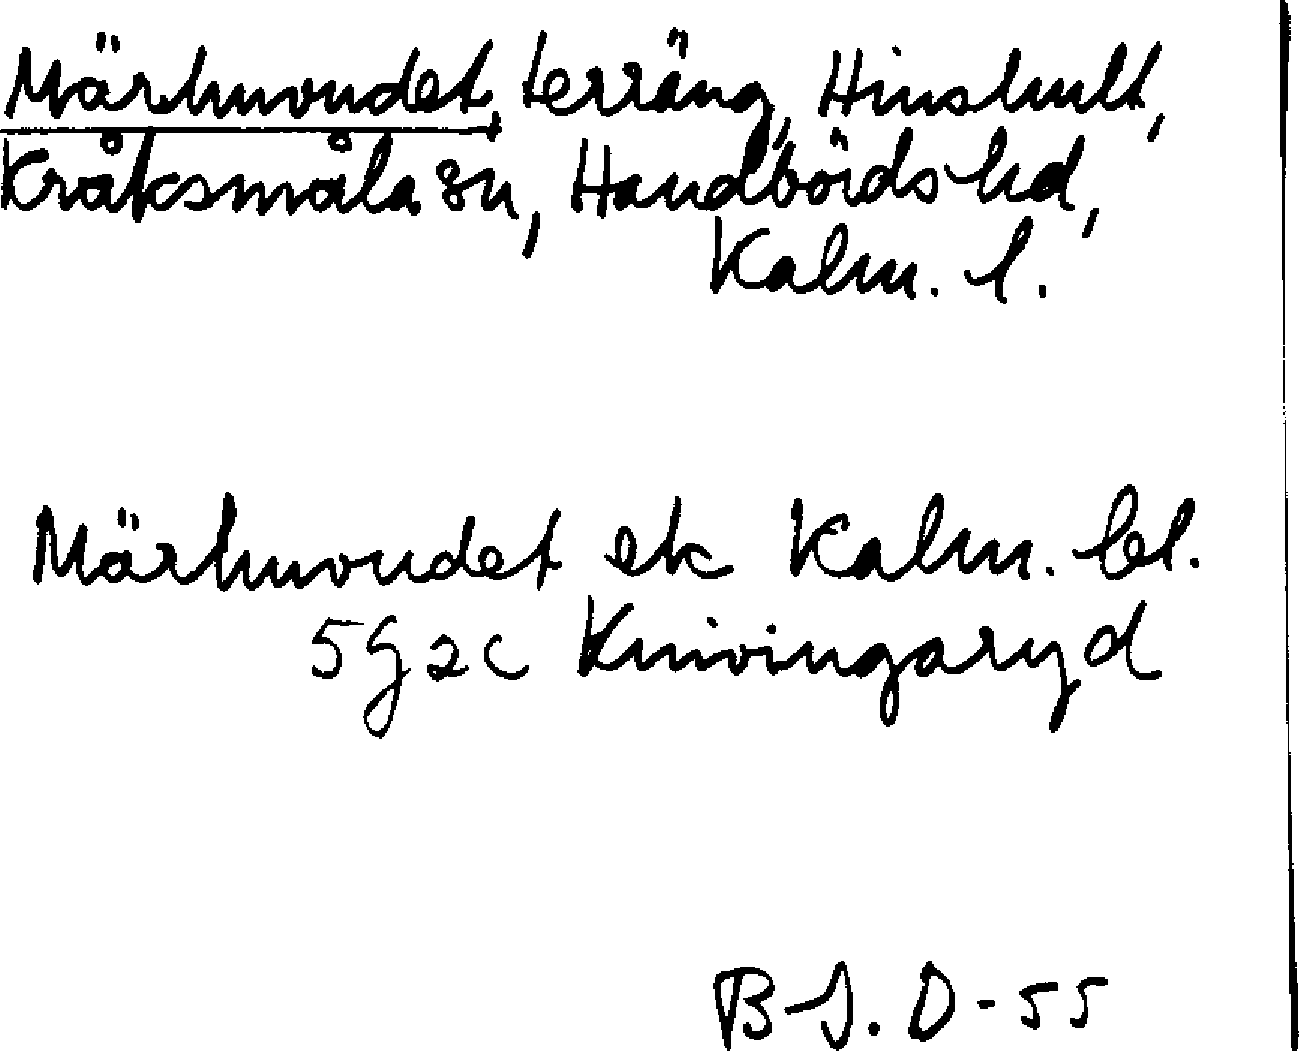 Märhuvudet, terräng, Hinshult,
Kråksmåla sn, Handbörds hd,
Kalm. l.
Märhuvudet ek Kalm. bl.
5G2c Knivingaryd
B-J. D-55